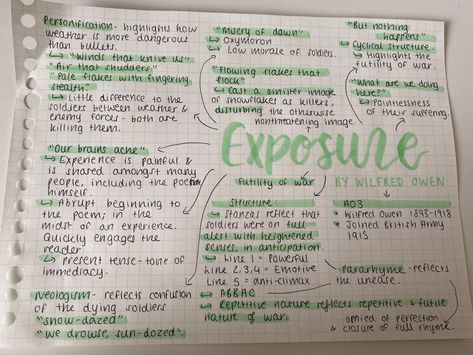 Personification- highlights how
weather is more dangerous
than bullets.
↳ "Winds that knive us"
"Air that shudders"
"Pale flakes with fingering
stealth."
↳ Little difference to the
soldiers between weather &
enemy forces - both are
killing them.
"Misery of dawn"
↳ Oxymoron
↳ Low morale of soldiers.
"Flowing flakes that
flock"
↳ Cast a sinister image
of snowflakes as killers,
disturbing the otherwise
nonthreatening image.
"But nothing
happens"
Cyclical structure
↳ Highlights the
futility of war.
"What are we doing
here?"
↳ Pointlessness
of their suffering.
Exposure
BY WILFRED OWEN
Futility of war
"Our brains ache"
↳ Experience is painful &
is shared amongst many
people, including the poet
himself.
↳ Abrupt beginning to
the poem; in the
midst of an experience.
Quickly engages the
reader
↳ present tense - tone of
immediacy.
Structure
↳ Stanzas reflect that
soldiers were on full
alert with heightened
senses, in anticipation.
↳ Line 1 = Powerful
Line 2,3,4 = Emotive
Line 5 = anti-climax
↳ ABBAC
↳ Repetitive nature reflects repetitive & futile
nature of war.
AO3
• Wilfred Owen 1893-1918
• Joined British Army
1915
Pararhyme - reflects
the unease.
deprived of perfection
& closure of full rhyme.
Neologism - reflects confusion
of the dying soldiers
"snow-dazed"
"we drowse, sun-dozed"